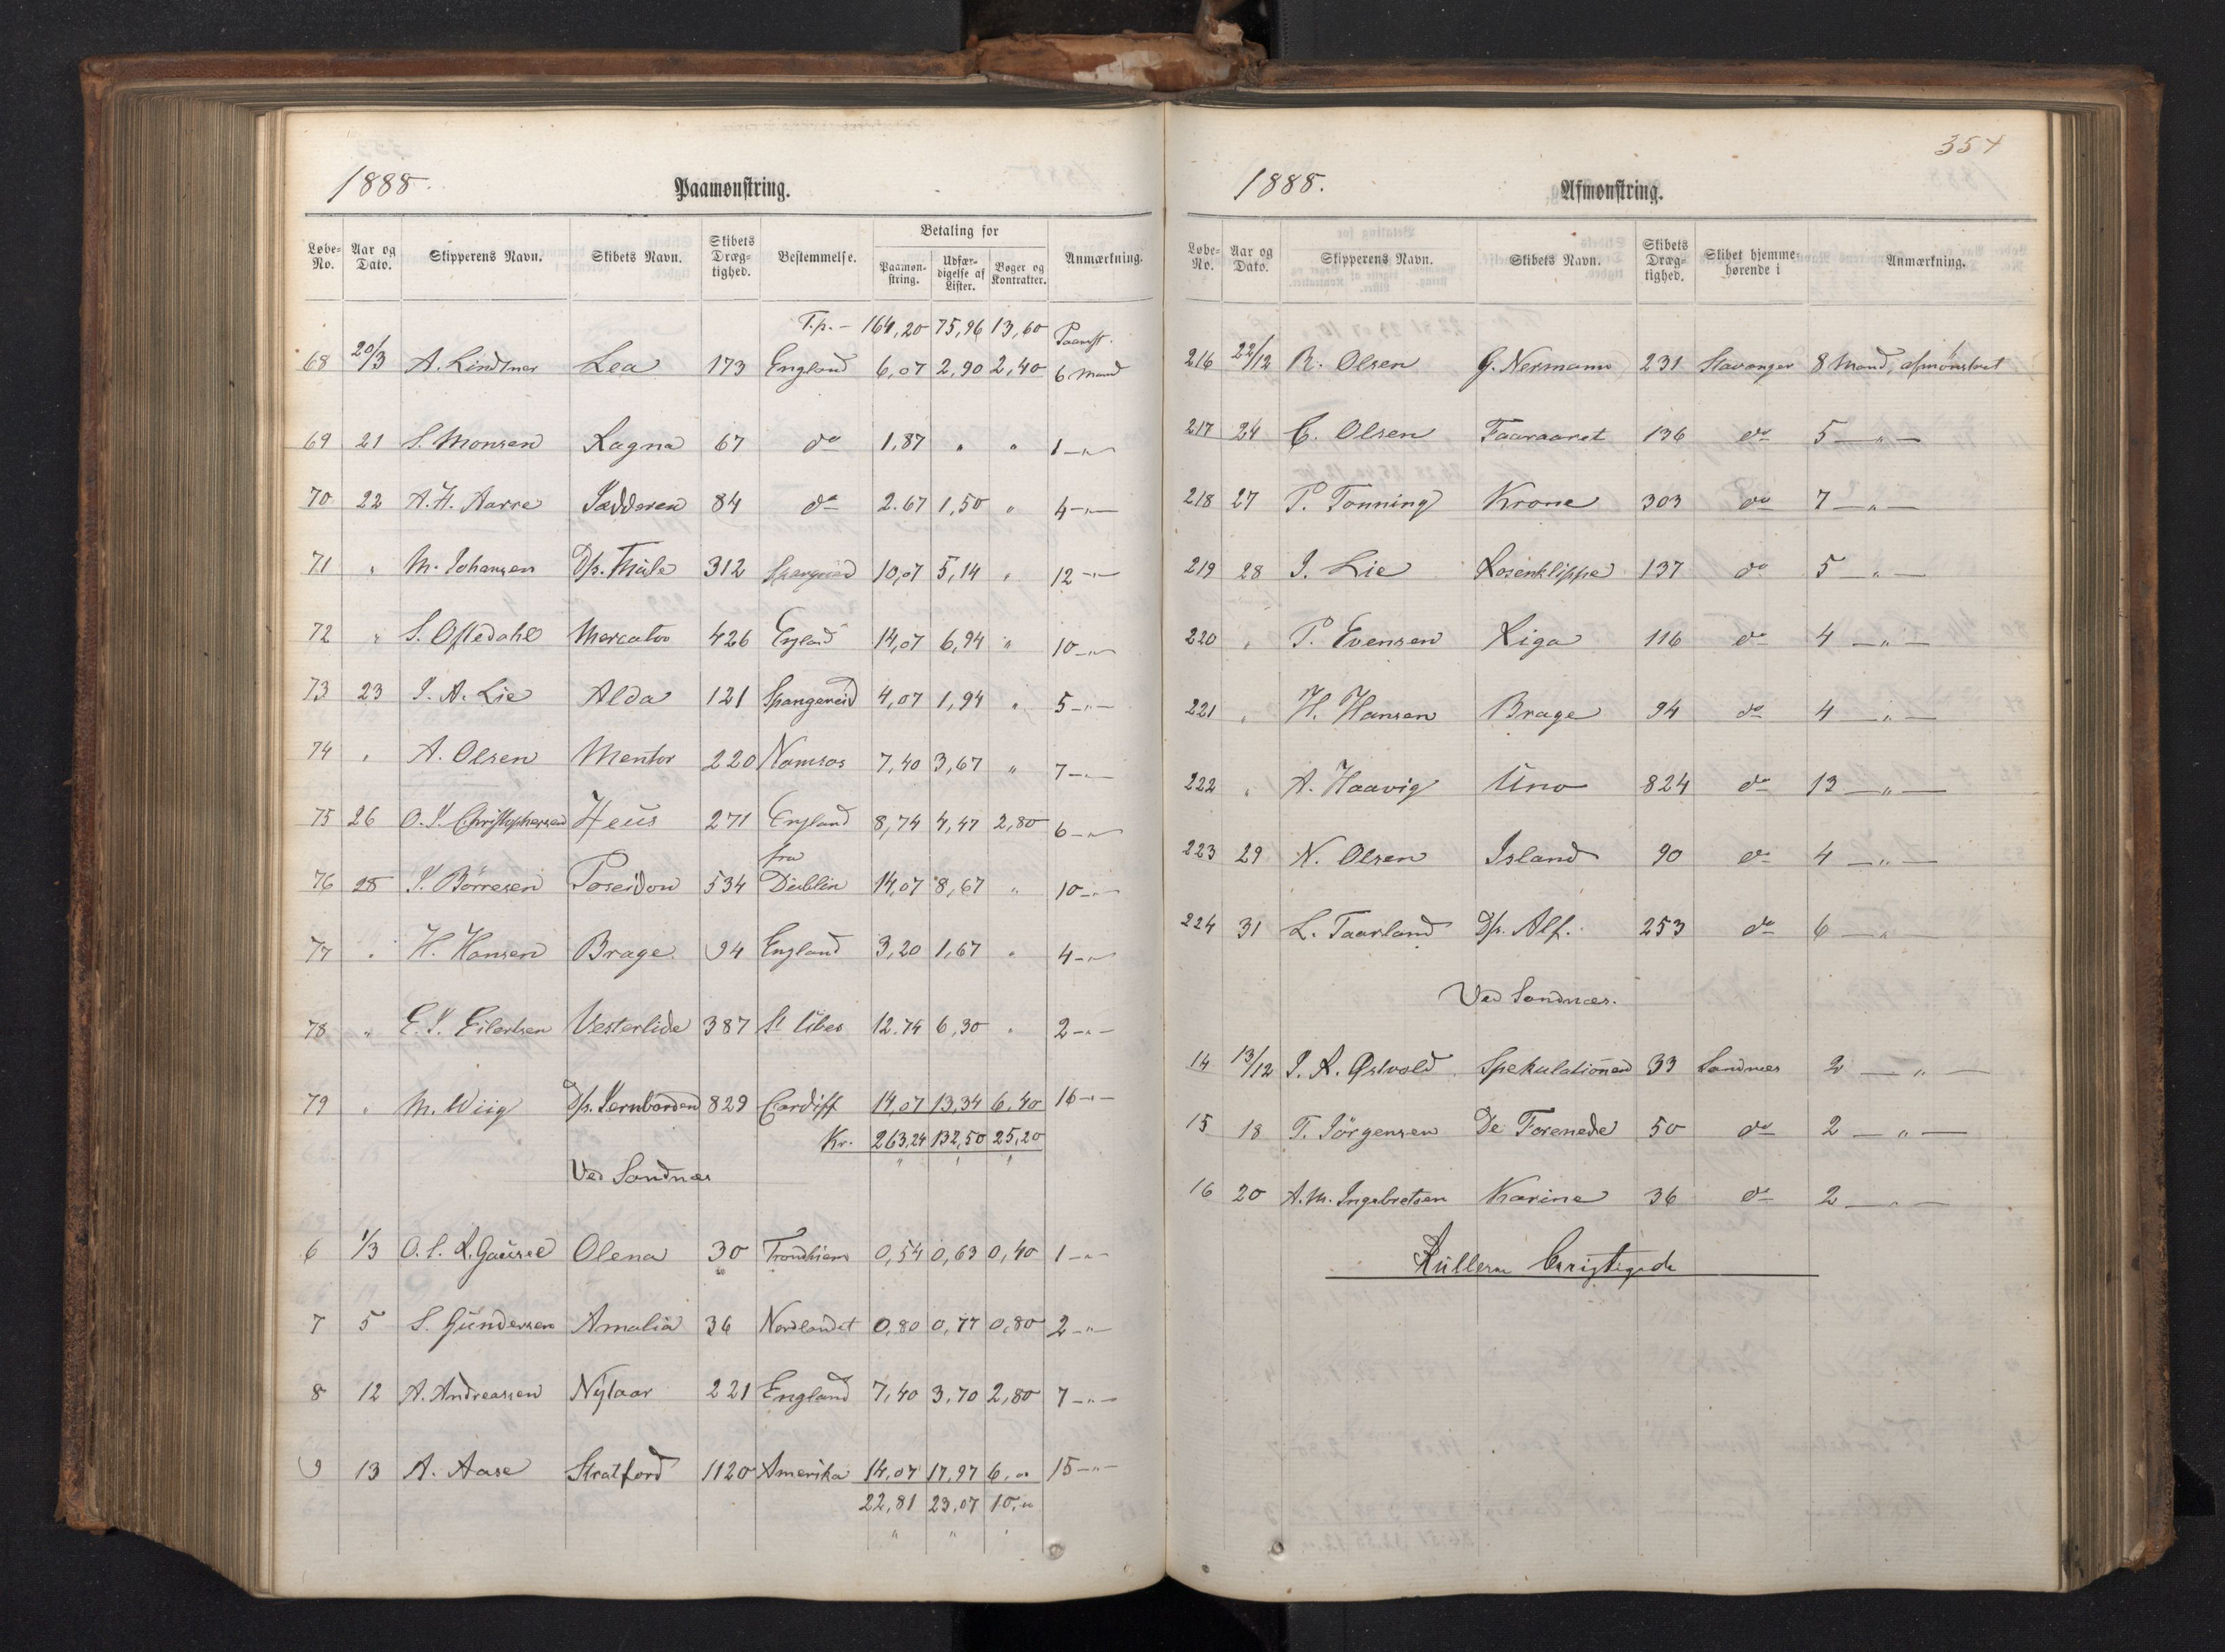 1888.
Paamønstring.
Løbe-No. Aar og Dato. Skipperens Navn. Skibets Navn. Skibets Dræg-tighed. Bestemmelse. Betaling for Paamøn-string. Udfær-digelse af Lister. Bøger og Kontrakter. Anmærkning.
T.p. - 164,20 75,96 13,60 Paamst.
68 20/3 A. Lindtner Lea 173 England 6,07 2,90 2,40 6 Mand
69 21 S. Monsen Ragna 67 do 1,87 " " 1 -"-
70 22 A. H. Aarre Jædderen 84 do 2.67 1,50 " 4 -"-
71 " M. Johansen D/s. Thule 312 Spangereid 10,07 5,14 " 12 -"-
72 " S. Oftedahl Mercator 426 England 14,07 6,94 " 10 -"-
73 23 J. A. Lie Alda 121 Spangereid 4,07 1,94 " 5 -"-
74 " A. Olsen Mentor 220 Namsos 7,40 3,67 " 7 -"-
75 26 O. J. Christophersen Zeus 271 England 8,74 4,47 2,80 6 -"-
76 28 J. Børresen Poseidon 534 fra Dublin 14,07 8,67 " 10 -"-
77 " H. Hansen Brage 94 England 3,20 1,67 " 4 -"-
78 " E. J. Eilertsen Vesterlide 387 St Übes 12.74 6,30 " 2 -"-
79 " M. Wiig D/s. Jernbarden 829 Cardiff 14,07 13,34 6,40 16 -"-
Kr. 263,24 132,50 25,20
Ved Sandnæs
6 1/3 O. S. K. Gausel Olena 30 Trondhiem 0,54 0,63 0,40 1 -"-
7 5 S. Gundersen Amalia 36 Nordlandet 0,80 0,77 0,80 2 -"-
8 12 A. Andreassen Nylaar 221 England 7,40 3,70 2,80 7 -"-
9 13 A. Aase Stratford 1120 Amerika 14,07 17,97 6," 15 -"-
22,81 23,07 10,"
354
1888.
Afmønstring.
Løbe-No. Aar og Dato. Skipperens Navn. Skibets Navn. Skibets Dræg-tighed. Skibet hjemme-hørende i Anmærkning.
216 22/12 R. Olsen G. Nermann 231 Stavanger 8 Mand, afmønstret
217 24 C. Olsen Faaraaret 136 do 5 -"-
218 27 P. Tonning Krone 303 do 7 -"-
219 28 J. Lie Rosenklippe 137 do 5 -"-
220 " P. Evensen Riga 116 do 4 -"-
221 " H. Hansen Brage 94 do 4 -"-
222 " A. Haavig Uno 824 do 13 -"-
223 29 N. Olsen Island 90 do 4 -"-
224 31 L. Taarland D/s. Alf. 253 do 6 -"-
Ved Sandnæs.
14 13/12 J. R. Østvold Spekulationen 33 Sandnæs 2 -"-
15 18 T. Jörgensen De Forenede 50 do 2 -"-
16 20 A. M. Ingebretsen Karine 36 do 2 -"-
Rullerne berigtigede